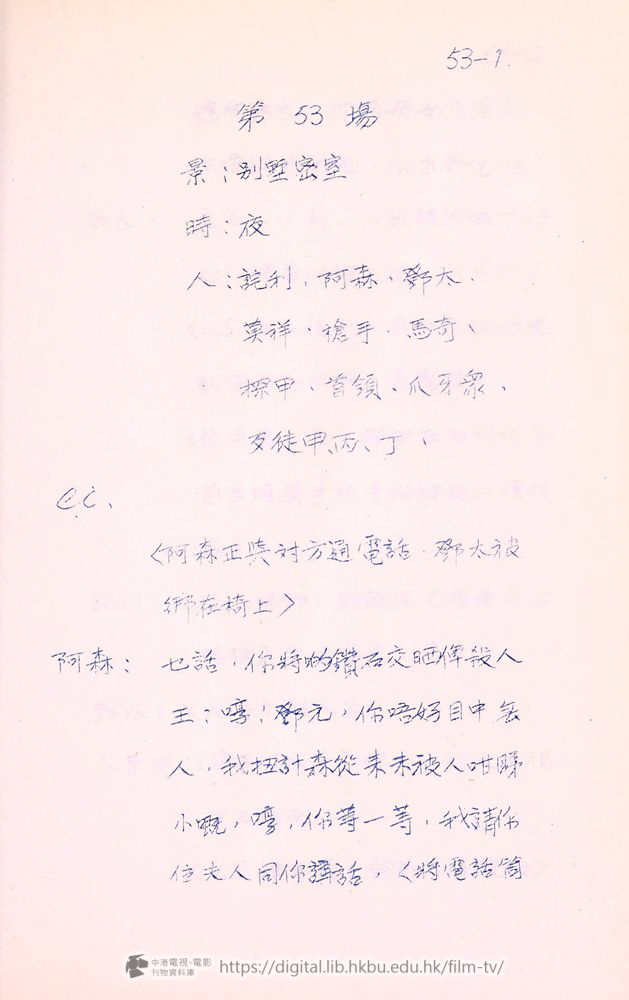 53-1.
第 53 場
景：別墅密室
時：夜
人：說利、阿森、鄧太、
莫祥、槍手、馬奇、
探甲、首領、爪牙眾、
歹徒甲、丙、丁
C.C.
〈阿森正與対方通電話，鄧太被
綁在椅上〉
阿森：乜話，你將的鑽石交晒俾殺人
王；嘮；鄧元，你唔好目中無
人，我扭計森從來未被人咁睇
小嘅，嘮，你等一等，我請你
位夫人同你講話，〈將電話筒
中港電視·電影
刊物資料庫
https://digital.lib.hkbu.edu.hk/film-tv/